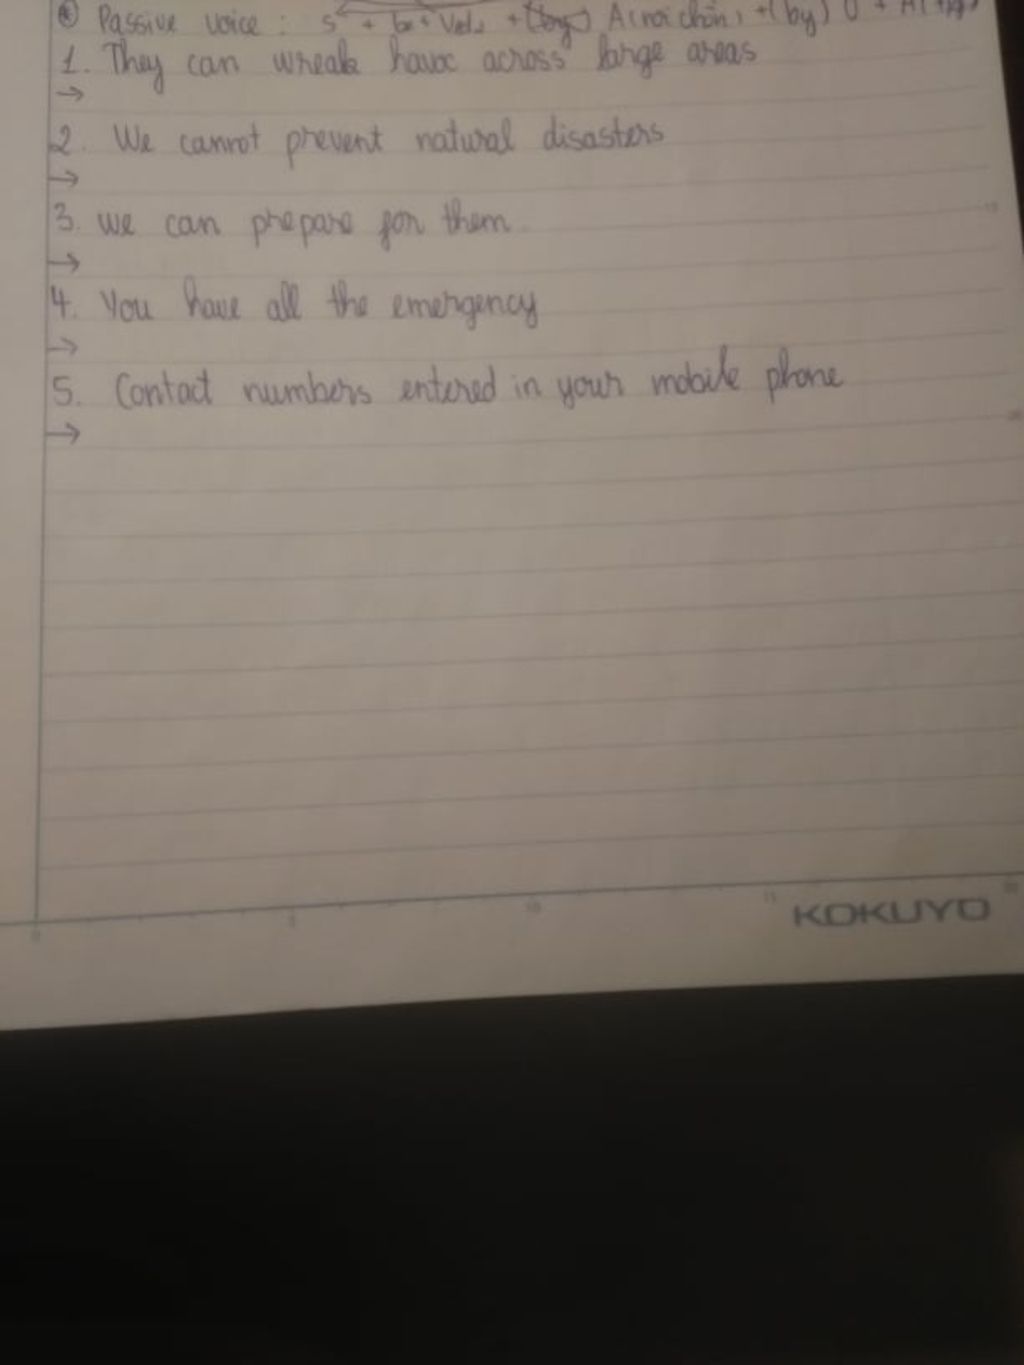 Passive voice: S + be + Ved + (by) A (nơi chốn) + (by) O + A (tg)
1. They can wreak havoc across large areas
→
2. We cannot prevent natural disasters
→
3. we can prepare for them
→
4. You have all the emergency
→
5. Contact numbers entered in your mobile phone
→
KOKUYO